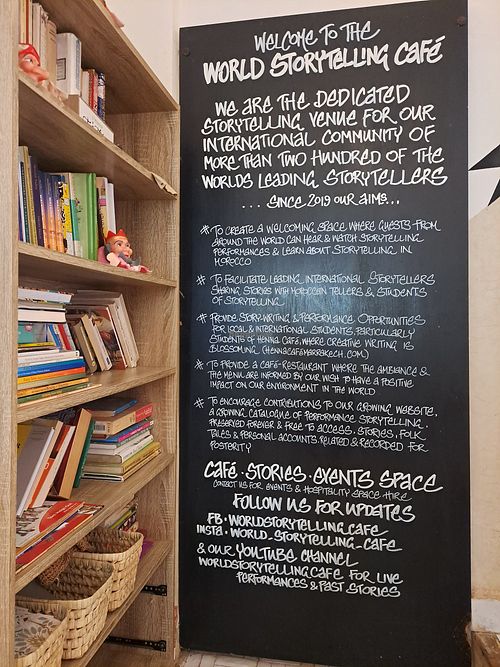 WELCOME TO THE
WORLD STORYTELLING CAFÉ
WE ARE THE DEDICATED
STORYTELLING VENUE FOR OUR
INTERNATIONAL COMMUNITY OF
MORE THAN TWO HUNDRED OF THE
WORLDS LEADING STORYTELLERS
... SINCE 2019 OUR AIMS...
* TO CREATE A WELCOMING SPACE WHERE GUESTS FROM
AROUND THE WORLD CAN HEAR & WATCH STORYTELLING
PERFORMANCES & LEARN ABOUT STORYTELLING IN
MOROCCO
* TO FACILITATE LEADING INTERNATIONAL STORYTELLERS
SHARING STORIES WITH MOROCCAN TELLERS & STUDENTS
OF STORYTELLING
* PROVIDE STORY-WRITING & PERFORMANCE OPPORTUNITIES
FOR LOCAL & INTERNATIONAL STUDENTS, PARTICULARLY
STUDENTS OF HENNA CAFÉ, WHERE CREATIVE WRITING IS
BLOSSOMING (HENNACAFEMARRAKECH.COM)
* TO PROVIDE A CAFÉ-RESTAURANT WHERE THE AMBIANCE &
THE MENU ARE INFORMED BY OUR WISH TO HAVE A POSITIVE
IMPACT ON OUR ENVIRONMENT IN THE WORLD
* TO ENCOURAGE CONTRIBUTIONS TO OUR GROWING WEBSITE,
A GROWING CATALOGUE OF PERFORMANCE STORYTELLING,
PRESERVED FOREVER & FREE TO ACCESS, STORIES, FOLK
TALES & PERSONAL ACCOUNTS RELATED & RECORDED FOR
POSTERITY
CAFÉ · STORIES · EVENTS SPACE
CONTACT US FOR EVENTS & HOSPITALITY SPACE HIRE
FOLLOW US FOR UPDATES
FB · WORLDSTORYTELLINGCAFE
INSTA · WORLD_STORYTELLING_CAFE
& OUR YOUTUBE CHANNEL
WORLDSTORYTELLINGCAFE FOR LIVE
PERFORMANCES & PAST STORIES